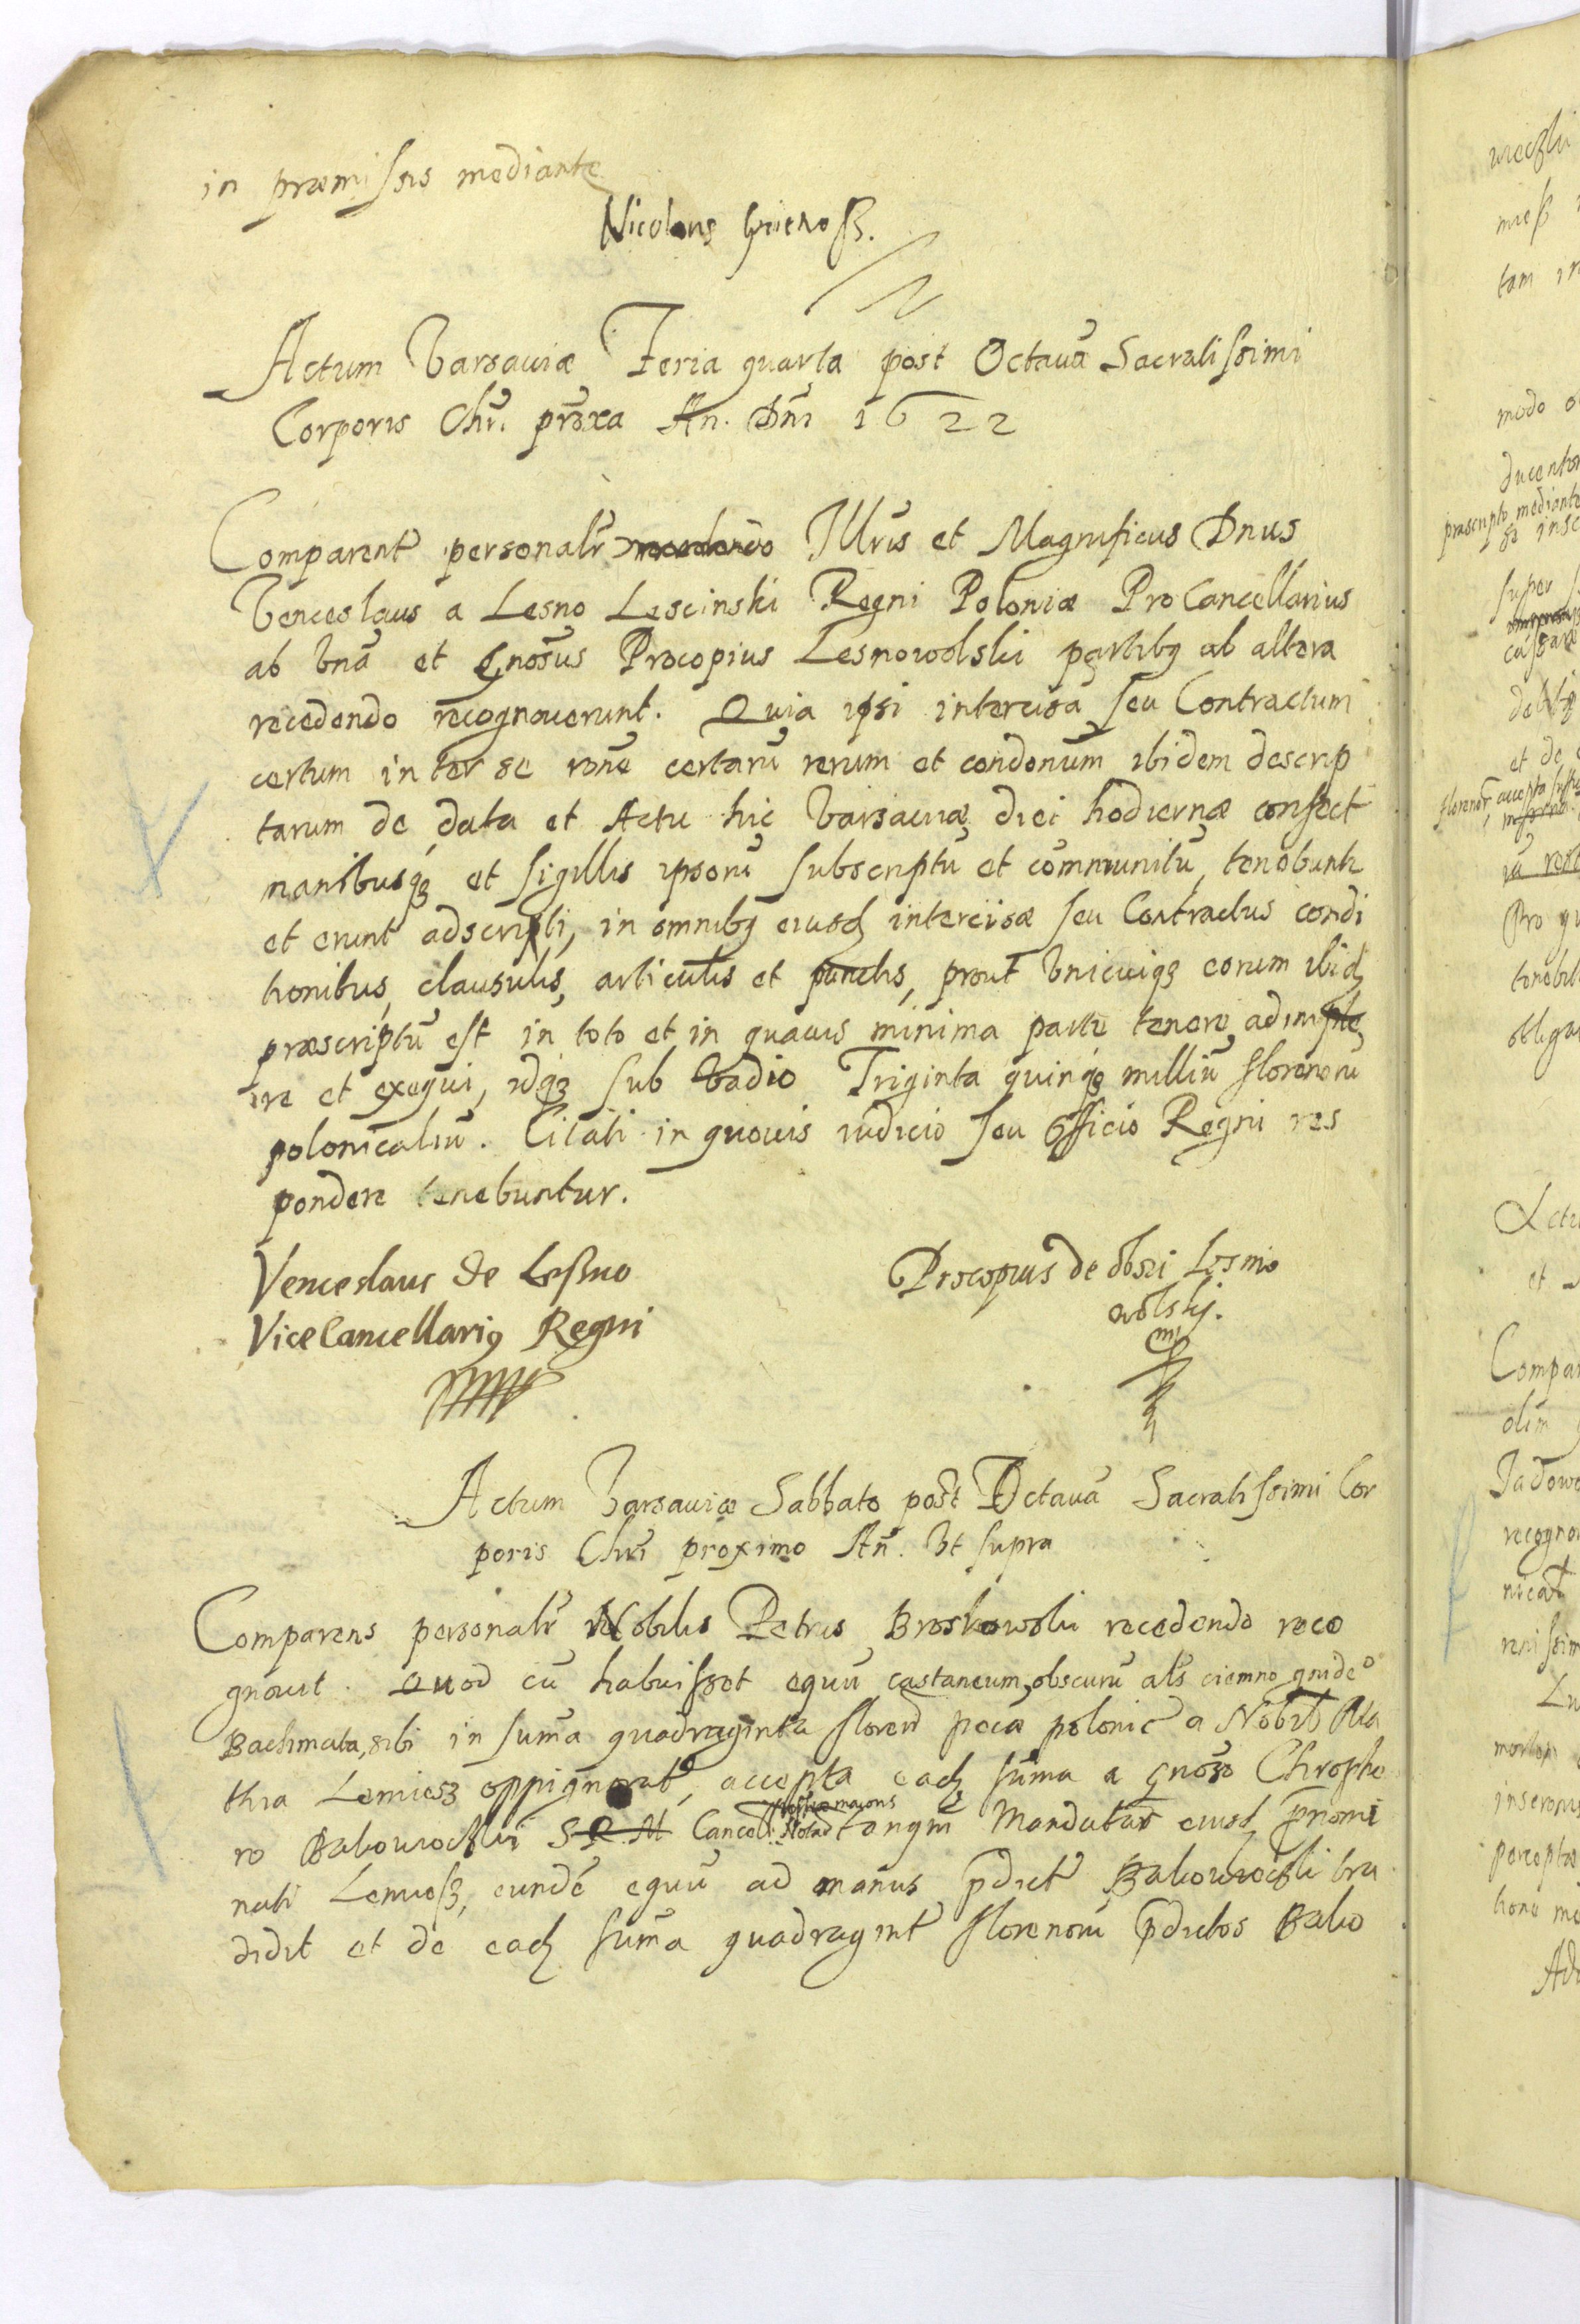 in præmissis mediante
Nicolaus
Actum Varsaviæ Feria quarta post Octavã Sacratissimi
Corporis Chri. proxa An. Dni 1622
Comparent personalr Illris et Magnificus Dnus
Venceslaus a Lesno Lescinski Regni Poloniæ ProCancellarius
ab vnã et Gnosus Procopius Lesnowolski partibq ab altera
recedendo recognoverunt. Quia ipsi intercisã seu Contractum
certum inter se rõne certarũ rerum et condonũm ibidem descrip
tarum de data et Actu hic Varsaviæ diei hodiernæ confect
manibusq3 et sigillis ipsorũ subscriptũ et cõmmunitũ, tenebuntr
et erunt adscripti, in omnibq eiusd intercisæ seu Contractus condi
tionibus, clausulis, articulis et punctis, prout vnicuiq3 eorum ibid
præscriptũ est in toto et in quavis minima parte tenere, adimple
re et exequi, idq3 sub vadio Triginta quinq3 milliũ florenorũ
polonicaliũ. Citati in quovis iudicio seu Officio Regni res
pondere tenebuntur.
Venceslaus de Leßno
Vicecancellariq Regni
Procopius de obori Lesnio
wolskj.
mp
Actum Varsaviæ Sabbato post Octavã Sacratissimi Cor
poris Chri proximo An. Vt supra
Comparens personalr Nobilis Petrus Broskowski recedendo reco
gnovit. Quod cũ habuisset equũ castaneum, obscurũ als ciemno gnide°
Bachmata, sibi in sum̃a quadraginta floren pecæ polonic a Nobil Ma
thia Lemiesz oppignorat, accepta ead sum̃a a gnoso Chrosto
ro Bakowieczki S R M Cancell nostræ maioris Notar tanqm Mandatar eiusd prnomi
nati Lemieß, eundẽ equũ ad manus prdict Bakowieczki tra
didit et de ead sum̃a quadragint florenorũ prdictos Bako